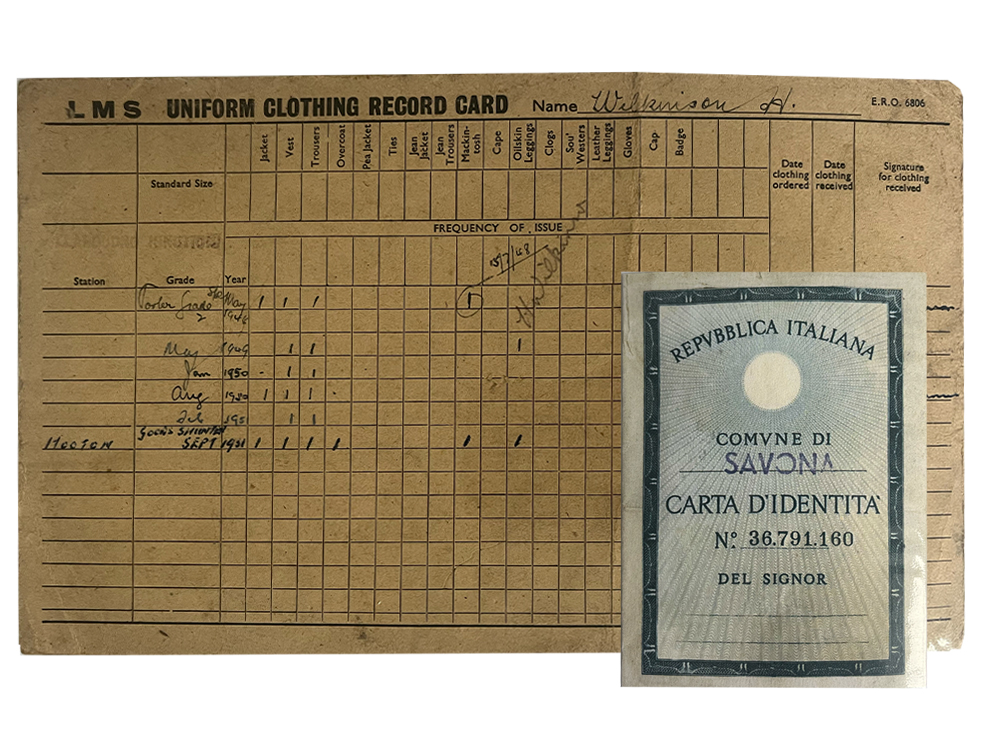 LMS UNIFORM CLOTHING RECORD CARD Name Wilkinson H. E.R.O. 6806
Jacket Vest Trousers Overcoat Pea Jacket Ties Jean Jacket Jean Trousers Mackin-tosh Cape Oilskin Leggings Clogs Sou' Westers Leather Leggings Gloves Cap Badge
Date clothing ordered Date clothing received Signature for clothing received
Standard Size
FREQUENCY OF ISSUE
Station Grade Year
5/7/48
H Wilkinson
Porter Grade 2 May 1948 1 1 1 1
May 1949 1 1 1
Jan 1950 - 1 1
Aug 1950 1 1 1
Feb 1951 1 1
GOODS SHUNTER
HOOTON SEPT 1951 1 1 1 1 1 1
REPVBBLICA ITALIANA
COMVNE DI
SAVONA
CARTA D'IDENTITA'
N.º 36.791.160
DEL SIGNOR